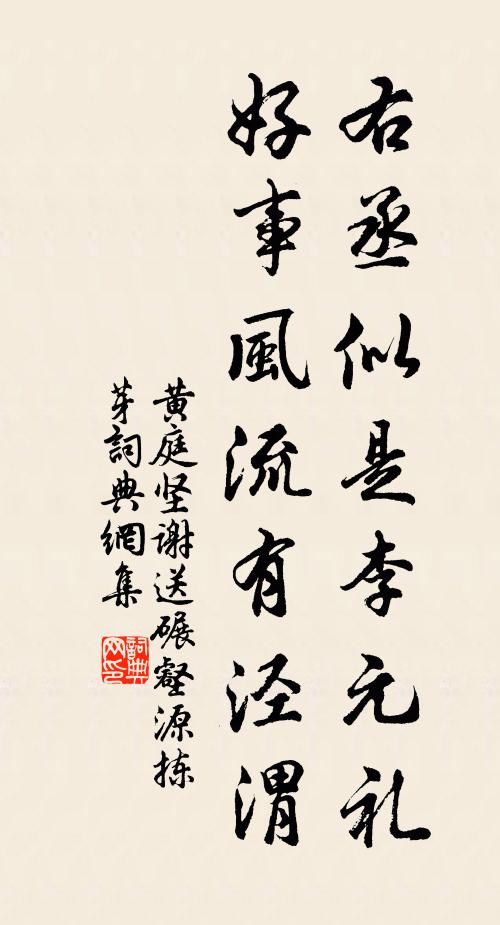 右丞似是李元礼
好事風流有泾渭
黄庭坚谢送碾壑源拣
芽詞典網集
詞典網印